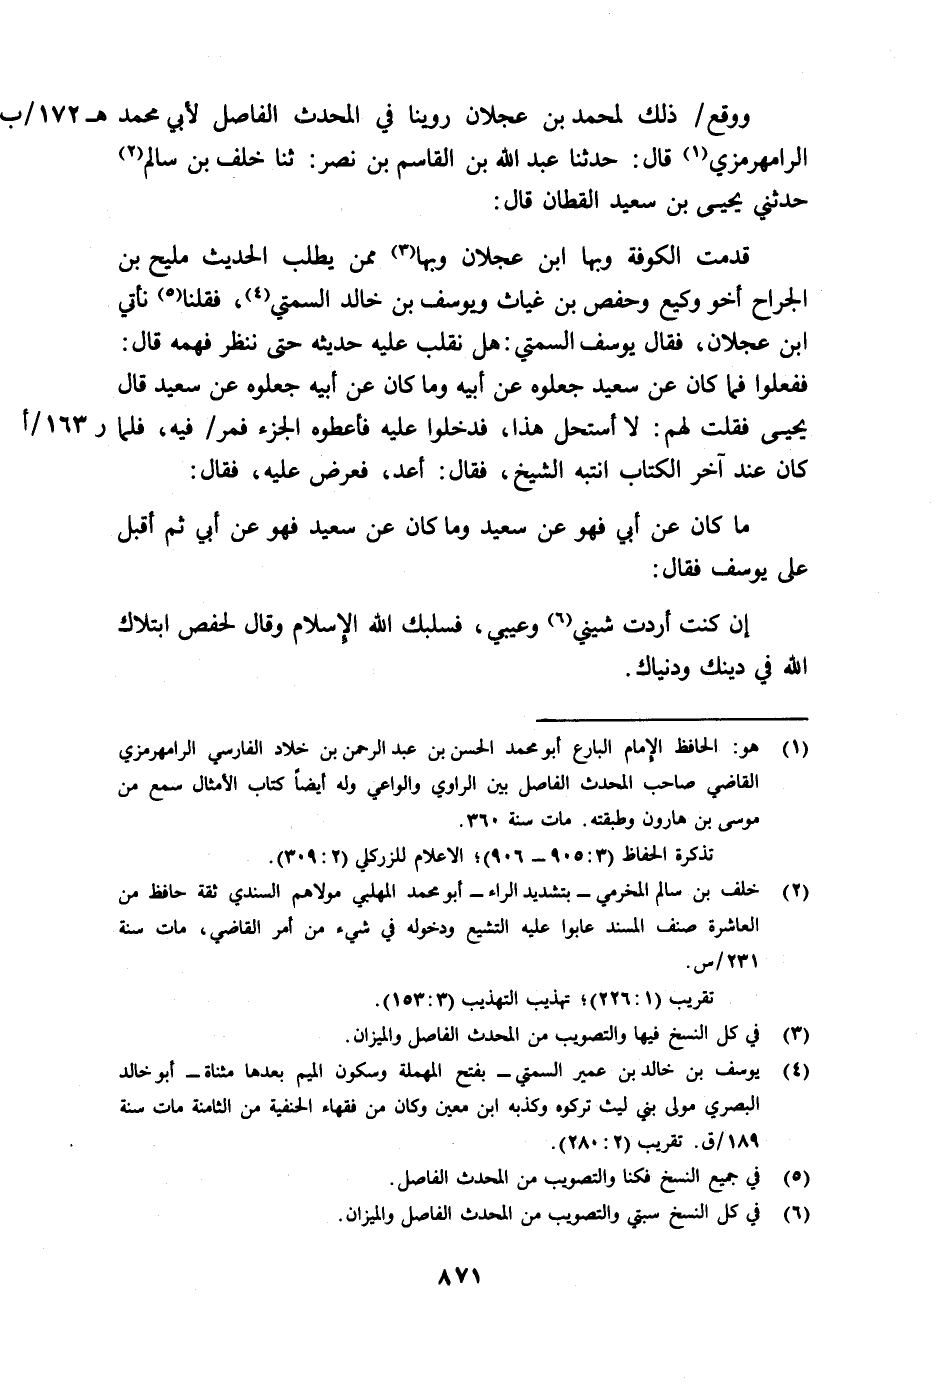 ووقع/ ذلك لمحمد بن عجلان روينا في المحدث الفاصل لأبي محمد هـ ١٧٢/ب
الرامهرمزي(١) قال: حدثنا عبد الله بن القاسم بن نصر: ثنا خلف بن سالم(٢)
حدثني يحيـى بن سعيد القطان قال:
قدمت الكوفة وبها ابن عجلان وبها(٣) ممن يطلب الحديث مليح بن
الجراح أخو وكيع وحفص بن غياث ويوسف بن خالد السمتي(٤)، فقلنا(٥) نأتي
ابن عجلان، فقال يوسف السمتي: هل نقلب عليه حديثه حتى ننظر فهمه قال:
ففعلوا فما كان عن سعيد جعلوه عن أبيه وما كان عن أبيه جعلوه عن سعيد قال
يحيـى فقلت لهم: لا أستحل هذا، فدخلوا عليه فأعطوه الجزء فمر/ فيه، فلما ر ١٦٣/أ
كان عند آخر الكتاب انتبه الشيخ، فقال: أعد، فعرض عليه، فقال:
ما كان عن أبي فهو عن سعيد وما كان عن سعيد فهو عن أبي ثم أقبل
على يوسف فقال:
إن كنت أردت شيني(٦) وعيبي، فسلبك الله الإسلام وقال لحفص ابتلاك
الله في دينك ودنياك.
(١) هو: الحافظ الإمام البارع أبو محمد الحسن بن عبد الرحمن بن خلاد الفارسي الرامهرمزي
القاضي صاحب المحدث الفاصل بين الراوي والواعي وله أيضاً كتاب الأمثال سمع من
موسى بن هارون وطبقته. مات سنة ٣٦٠.
تذكرة الحفاظ (٣: ٩٠٥ ـ ٩٠٦)؛ الاعلام للزركلي (٢: ٣٠٩).
(٢) خلف بن سالم المخرمي ـ بتشديد الراء ـ أبو محمد المهلبي مولاهم السندي ثقة حافظ من
العاشرة صنف المسند عابوا عليه التشيع ودخوله في شيء من أمر القاضي، مات سنة
٢٣١/س.
تقريب (١: ٢٢٦)؛ تهذيب التهذيب (٣: ١٥٣).
(٣) في كل النسخ فيها والتصويب من المحدث الفاصل والميزان.
(٤) يوسف بن خالد بن عمير السمتي ـ بفتح المهملة وسكون الميم بعدها مثناة ـ أبو خالد
البصري مولى بني ليث تركوه وكذبه ابن معين وكان من فقهاء الحنفية من الثامنة مات سنة
١٨٩/ق. تقريب (٢: ٢٨٠).
(٥) في جميع النسخ فكنا والتصويب من المحدث الفاصل.
(٦) في كل النسخ سبتي والتصويب من المحدث الفاصل والميزان.
٨٧١